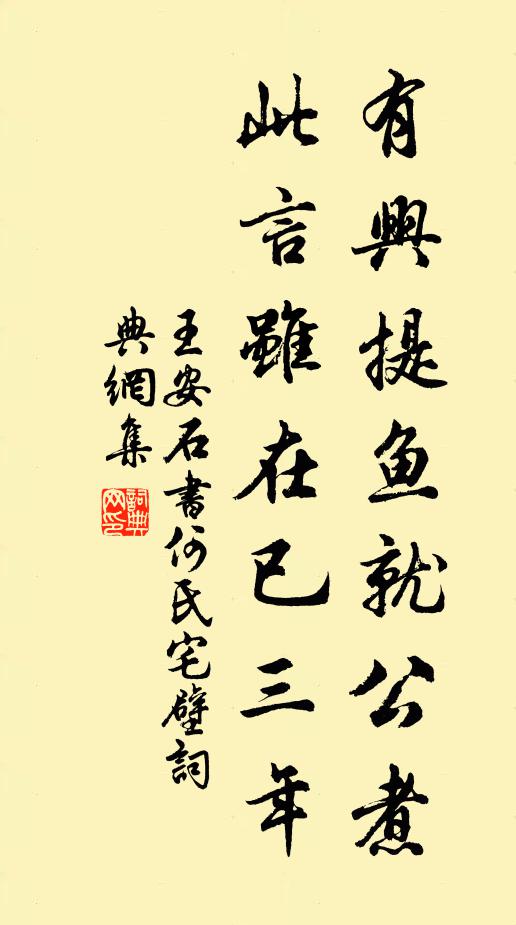 有興提魚就公煮
此言雖在已三年
王安石書何氏宅壁詞
典網集
詞典網印